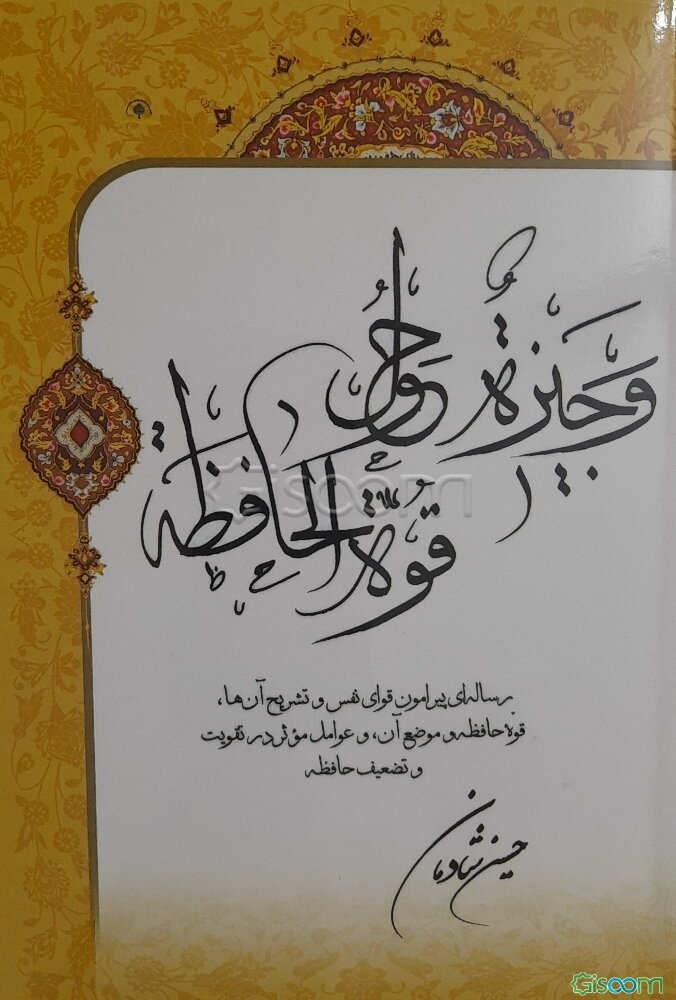 وَجیزةٌ حَولَ
قُوّةِ الحافِظَة
Gisoom
رساله‌ای پیرامون قوای نفس و تشریح آن‌ها،
قوهٔ حافظه و موضع آن، و عوامل مؤثر در تقویت
و تضعیف حافظه
حسین شادمان
Gisoom